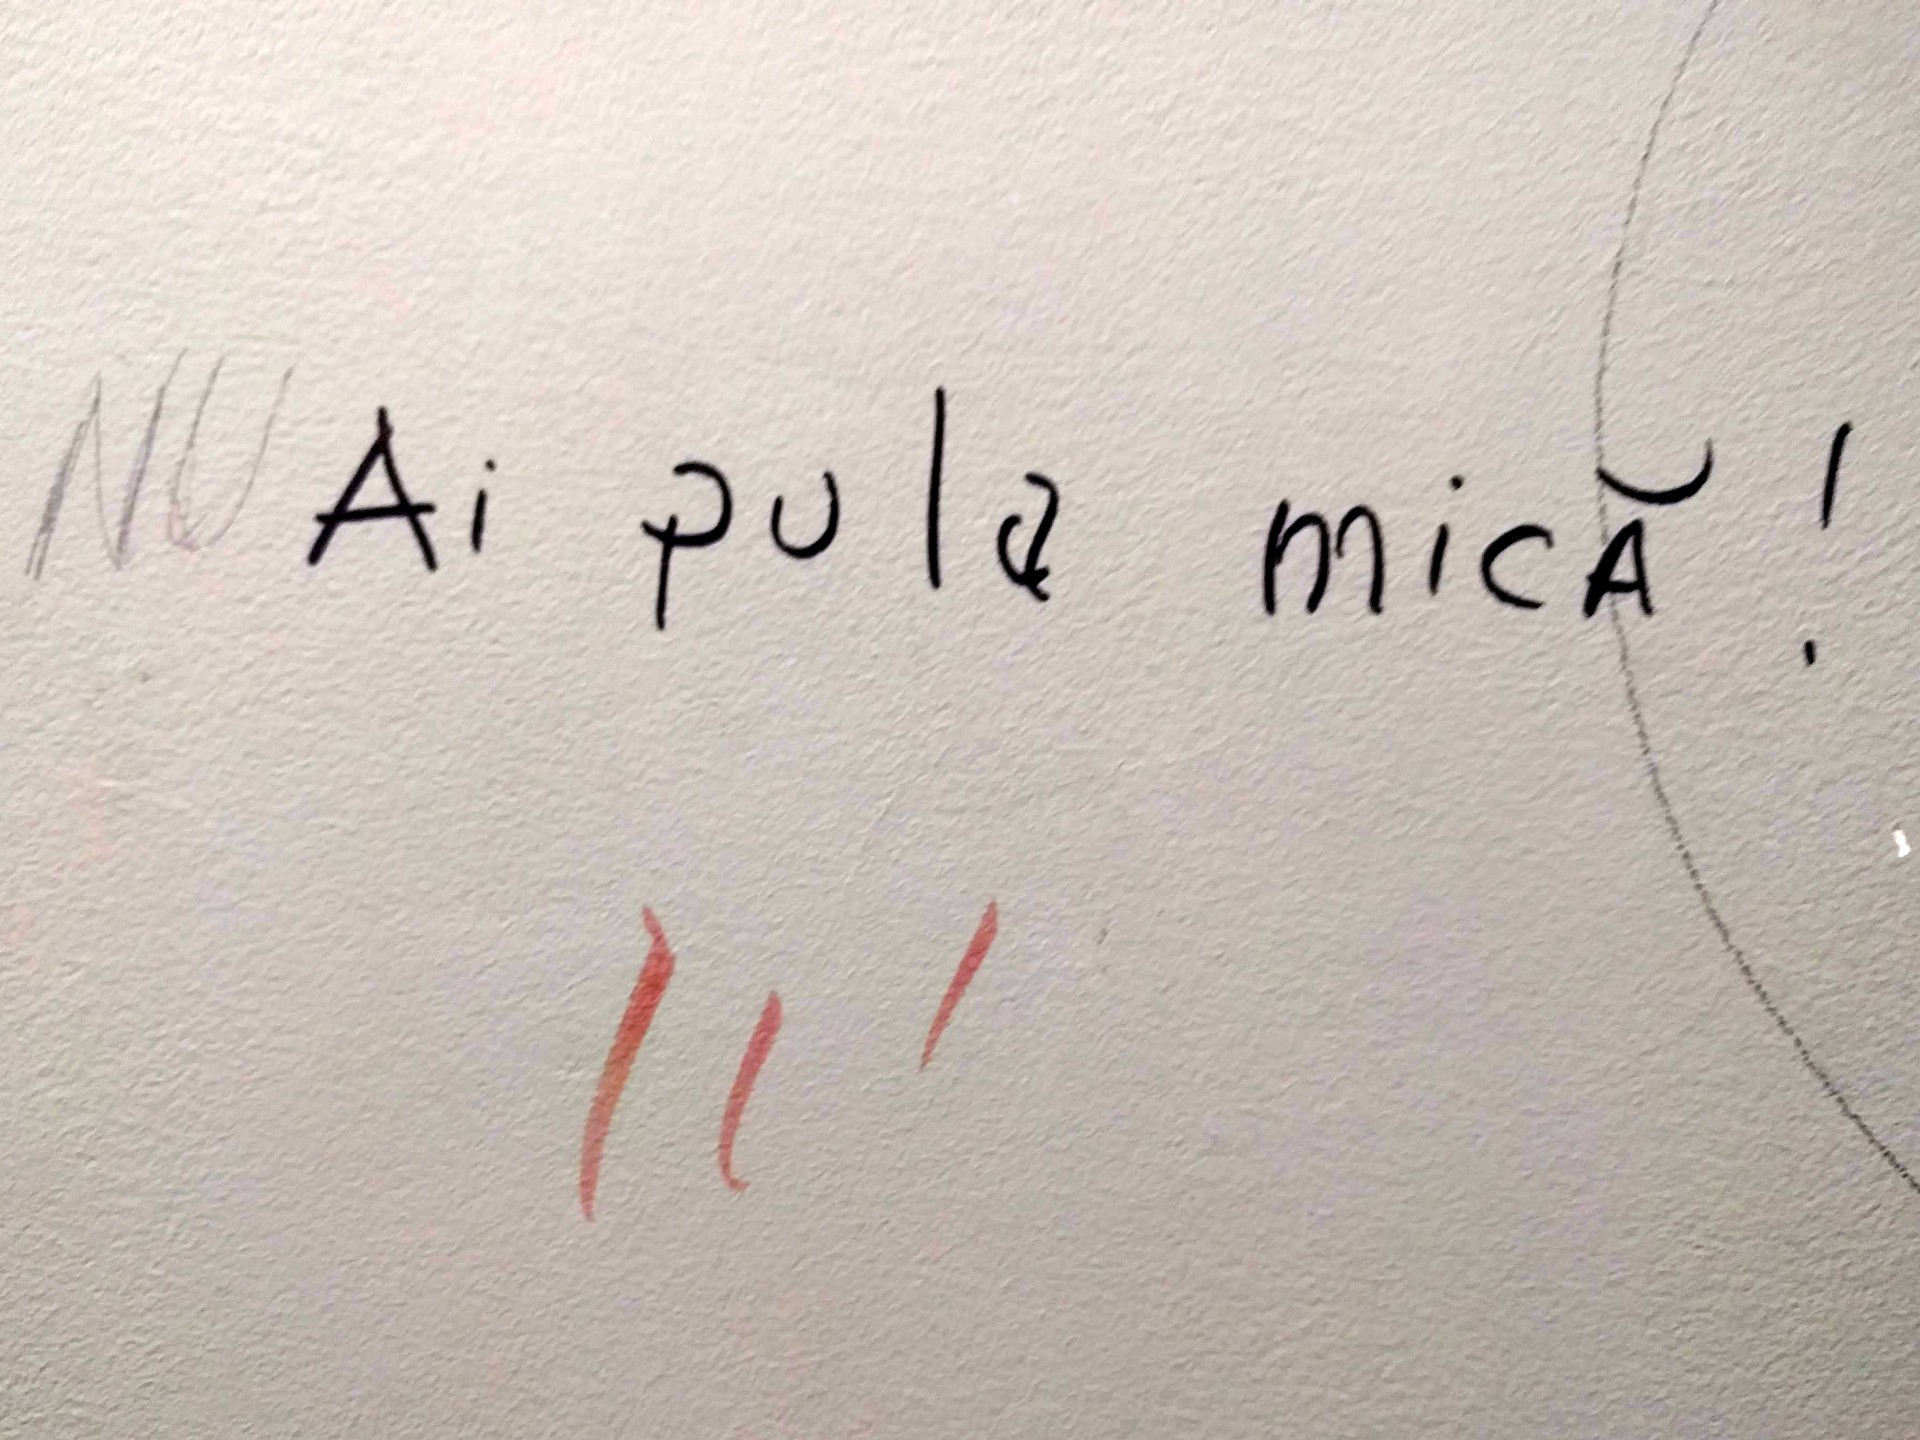 NU Ai pula micĂ!